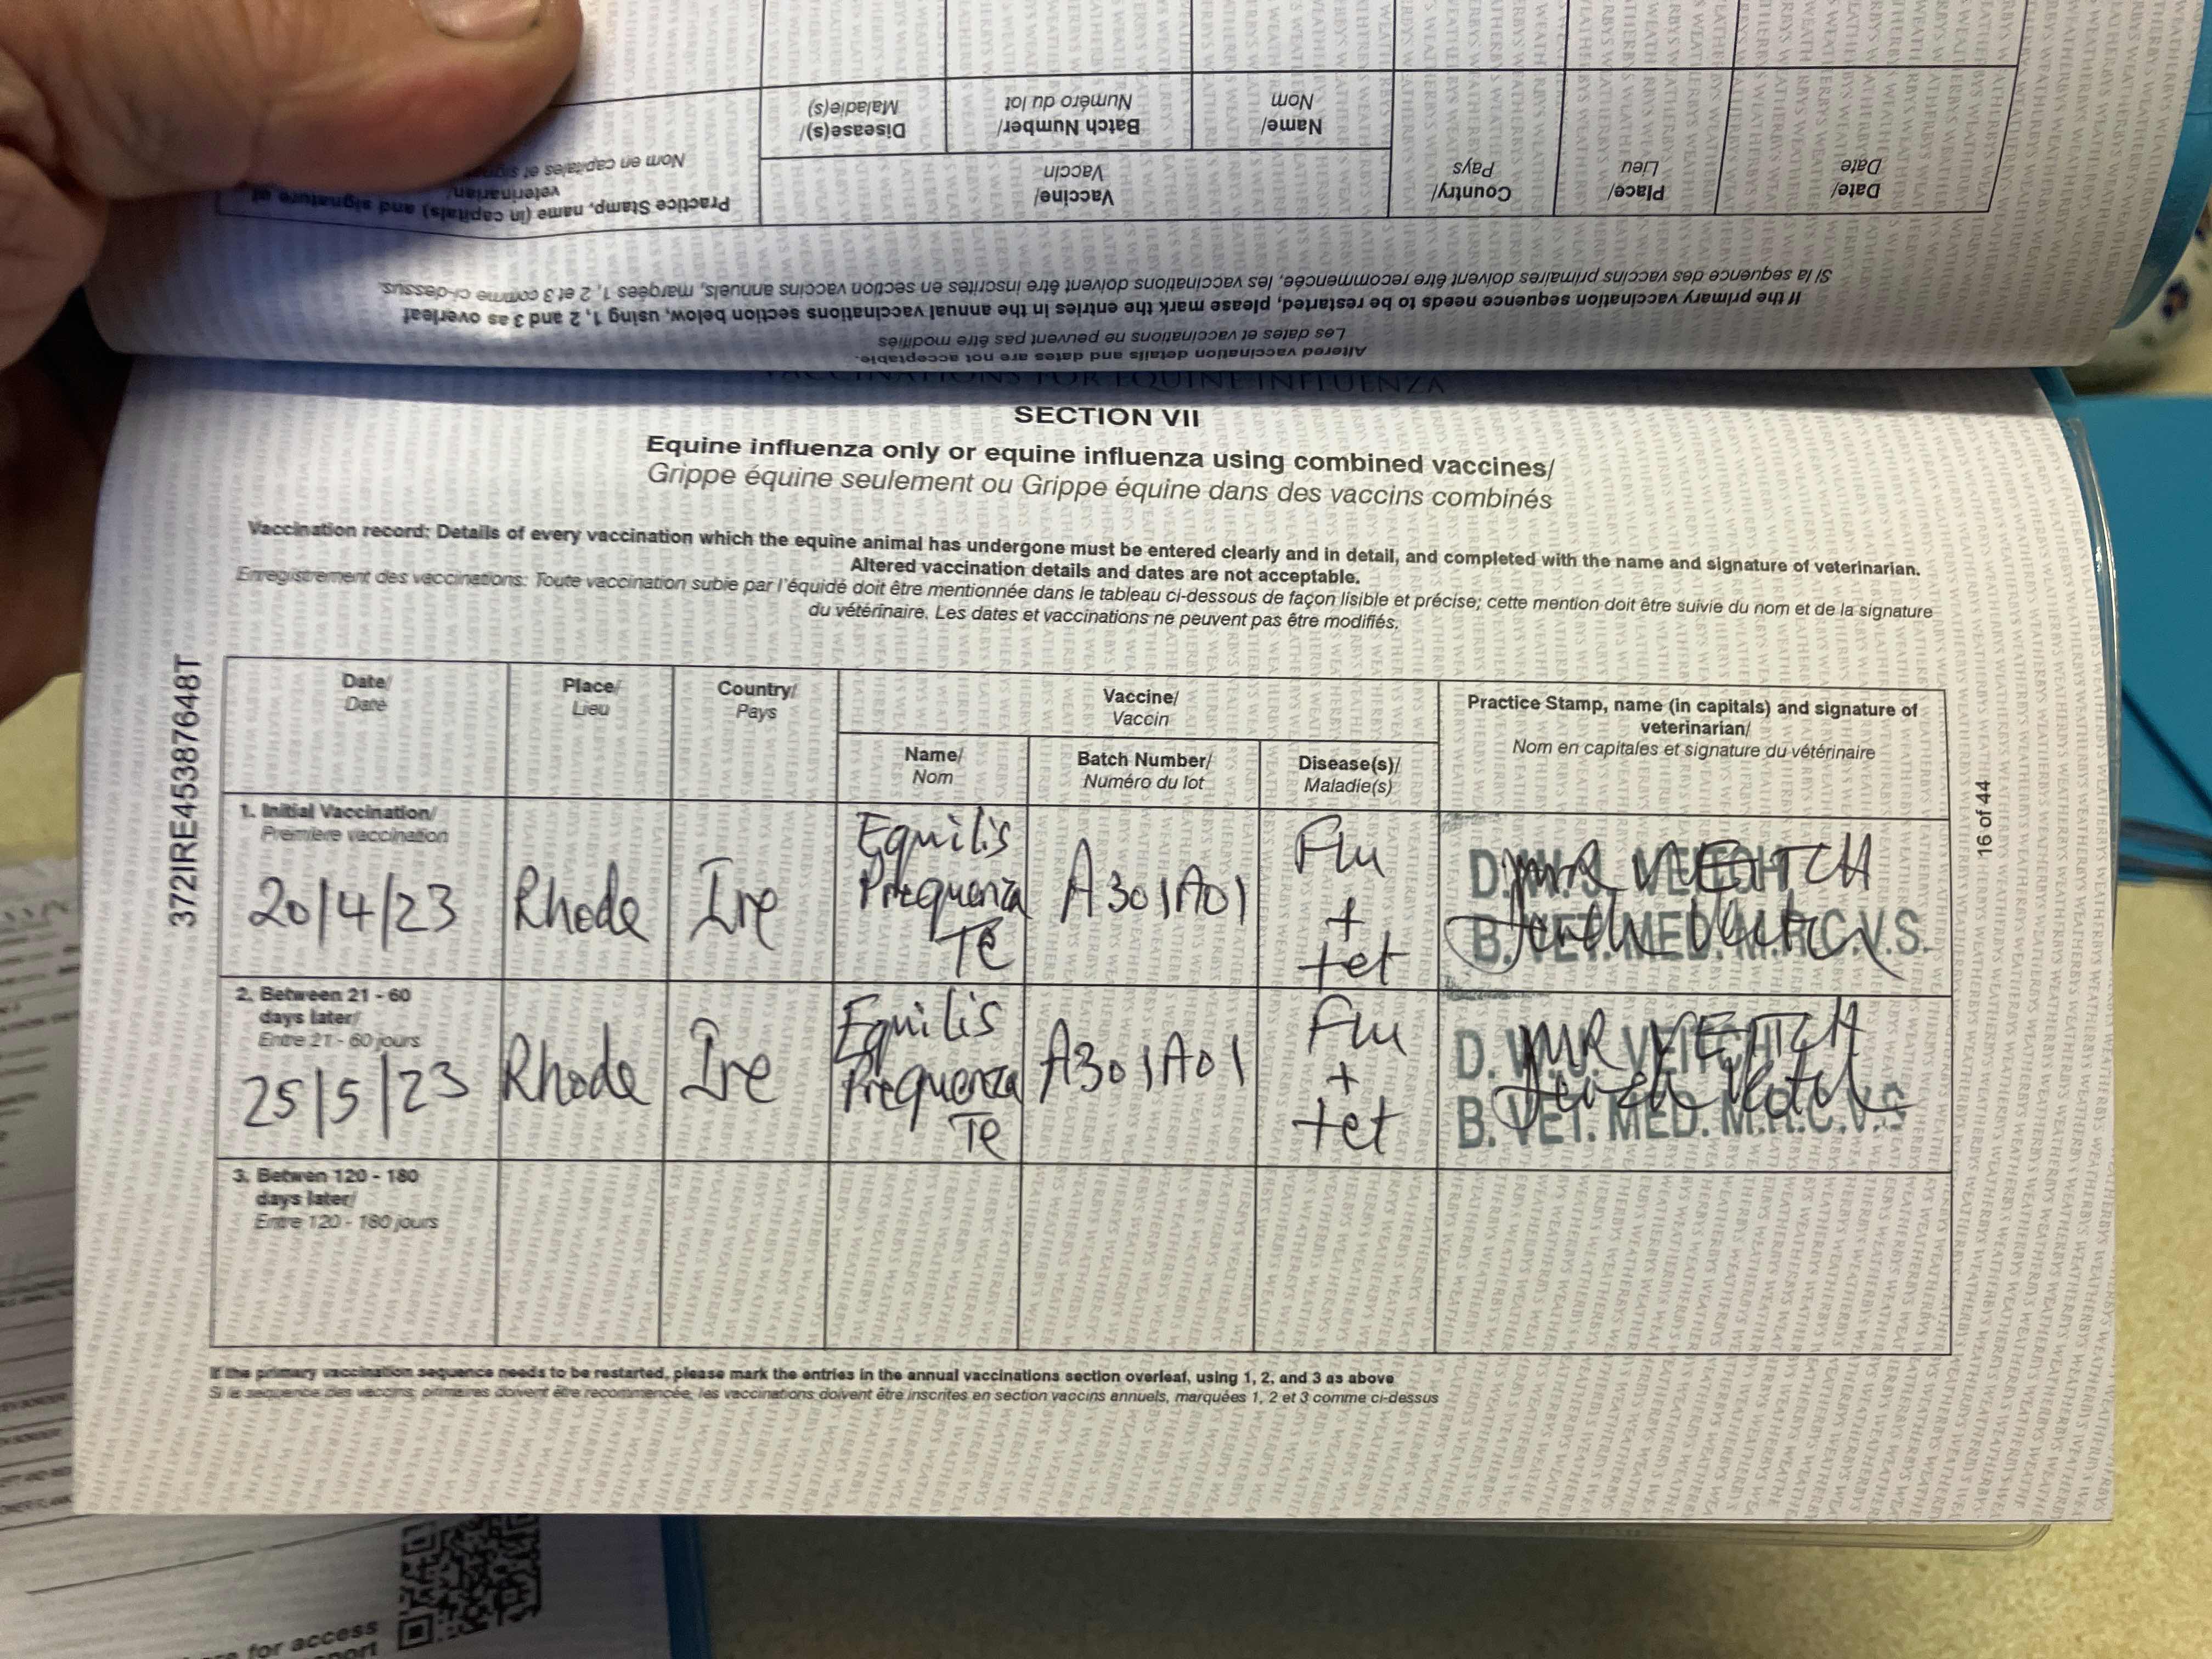 Practice Stamp, name (in capitals) and signature of
veterinarian/
Nom en capitales et
Vaccine/
Vaccin
Country/
Pays
Place/
Lieu
Date/
Date
Disease(s)/
Maladie(s)
Batch Number/
Numéro du lot
Name/
Nom
If the primary vaccination sequence needs to be restarted, please mark the entries in the annual vaccinations section below, using 1, 2 and 3 as overleaf
Si la sequence des vaccins primaires doivent être recommencée, les vaccinations doivent être inscrites en section vaccins annuels, marqées 1, 2 et 3 comme ci-dessus.
Altered vaccination details and dates are not acceptable.
Les dates et vaccinations ne peuvent pas être modifiés
VACCINATIONS FOR EQUINE INFLUENZA
SECTION VII
Equine influenza only or equine influenza using combined vaccines/
Grippe équine seulement ou Grippe équine dans des vaccins combinés
Vaccination record: Details of every vaccination which the equine animal has undergone must be entered clearly and in detail, and completed with the name and signature of veterinarian.
Altered vaccination details and dates are not acceptable.
Enregistrement des vaccinations: Toute vaccination subie par l'équidé doit être mentionnée dans le tableau ci-dessous de façon lisible et précise; cette mention doit être suivie du nom et de la signature
du vétérinaire. Les dates et vaccinations ne peuvent pas être modifiés.
372IRE45387648T
Date/
Date
Place/
Lieu
Country/
Pays
Vaccine/
Vaccin
Practice Stamp, name (in capitals) and signature of
veterinarian/
Nom en capitales et signature du vétérinaire
Name/
Nom
Batch Number/
Numéro du lot
Disease(s)/
Maladie(s)
1. Initial Vaccination/
Premiere vaccination
20/4/23
Rhode
Ire
Equilis
Prequenza
Te
A301A01
Flu
+
tet
MR VEATCH
B. VET. MED. M.R.C.V.S.
2. Between 21 - 60
days later/
Entre 21 - 60 jours
25/5/23
Rhode
Ire
Equilis
Prequenza
Te
A301A01
Flu
+
tet
MR VEATCH
B. VET. MED. M.R.C.V.S
3. Betwen 120 - 180
days later/
Entre 120 - 180 jours
16 of 44
If the primary vaccination sequence needs to be restarted, please mark the entries in the annual vaccinations section overleaf, using 1, 2, and 3 as above
Si la sequence des vaccins primaires doivent être recommencée, les vaccinations doivent être inscrites en section vaccins annuels, marquées 1, 2 et 3 comme ci-dessus
for access